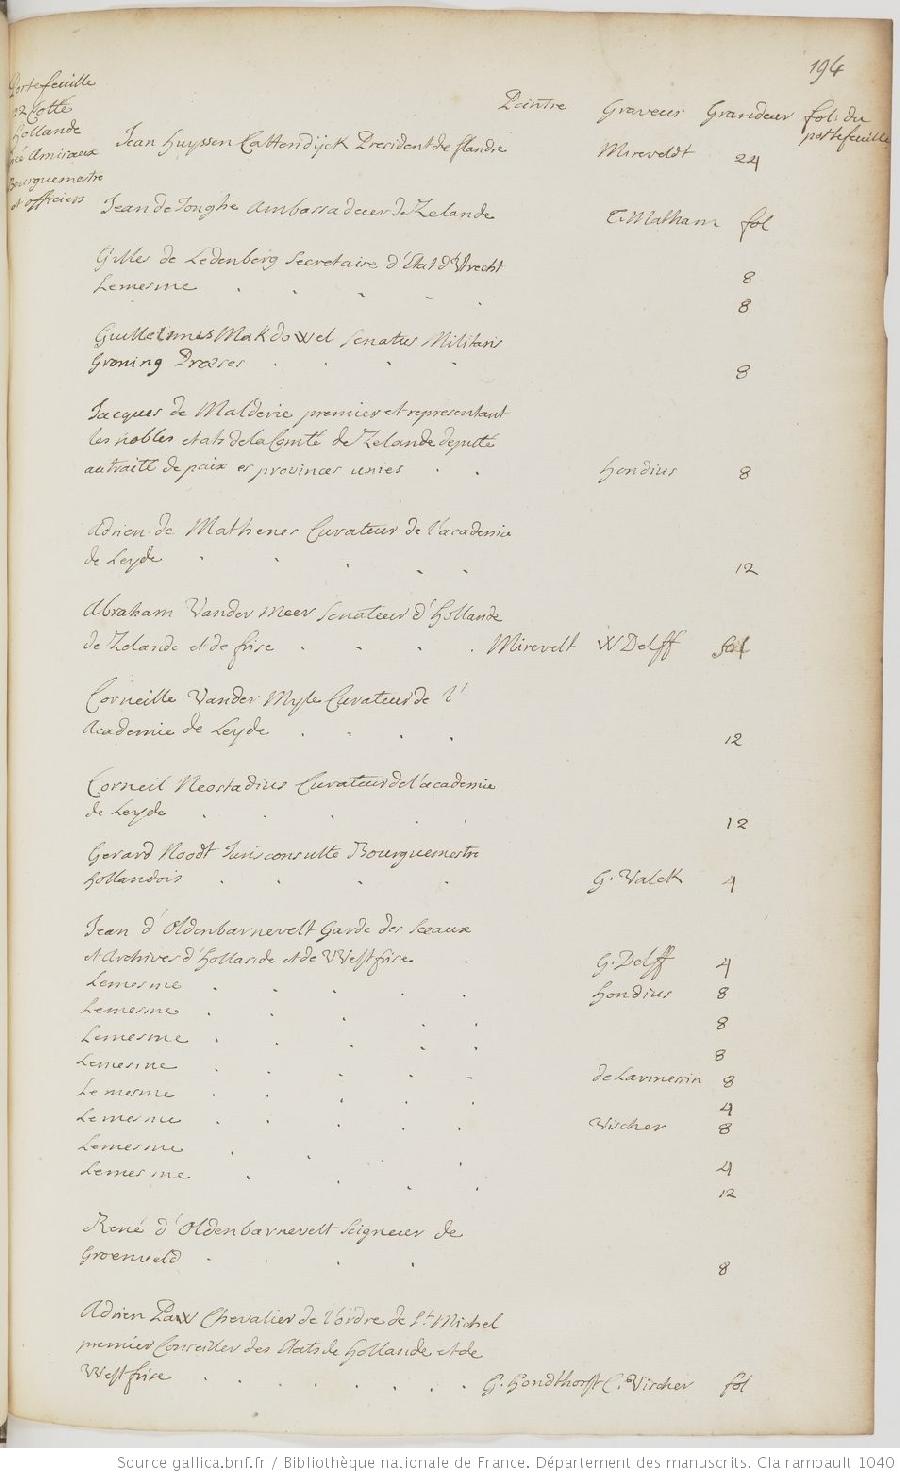 194
Portefeuille
22 Cotté
Hollande
Amiraux
Bourguemestre
et officiers
Peintre Graveur Grandeur fol: du
portefeuille
Jean Huyssen Cattendijck President de flandre Mireveldt 24
Jean de Jonghe Ambassadeur de Zelande T. Matham fol
Gilles de Ledenberg Secretaire d'Etat d'Utrecht 8
Lemesme . . . . . 8
Guillelmus Makdowel Senatus Militaris
Groning Præses . . . . 8
Jacques de Malderée premier et representant
les nobles etats de la Comté de Zelande deputé
au traité de paix es provinces unies . . hondius 8
Adrien de Mathenes Curateur de l'academie
de Leyde . . . . . 12
Abraham Vander Meer Senateur d'hollande
de Zelande et de frise . . . . Mirevelt W Delff fol
Corneille Vander Myle Curateur de l'
Academie de Leyde . . . . 12
Corneil Neostadius Curateur de l'academie
de Leyde . . . . 12
Gerard Noodt Jurisconsulte Bourguemestre
hollandois . . . . G. Valck 4
Jean d'Oldenbarnevelt Garde des Sceaux
et Archives d'hollande et de Westfrise G. Delff 4
Lemesme . . . . . hondius 8
Lemesme . . . . 8
Lemesme . . . . 8
Lemesme . . . . . de Larmessin 8
Lemesme . . . . . 4
Lemesme . . . . . Vischer 8
Lemesme . . . 4
Lemesme . . . . 12
René d'Oldenbarnevelt Seigneur de
Groenveld . . . 8
Adrien Paw Chevalier de l'ordre de St. Michel
premier Conseiller des Etats de hollande et de
Westfrise . . . . . . . G. Hondthorst C. Vischer fol
Source gallica.bnf.fr / Bibliothèque nationale de France. Département des manuscrits. Clairambault 1040